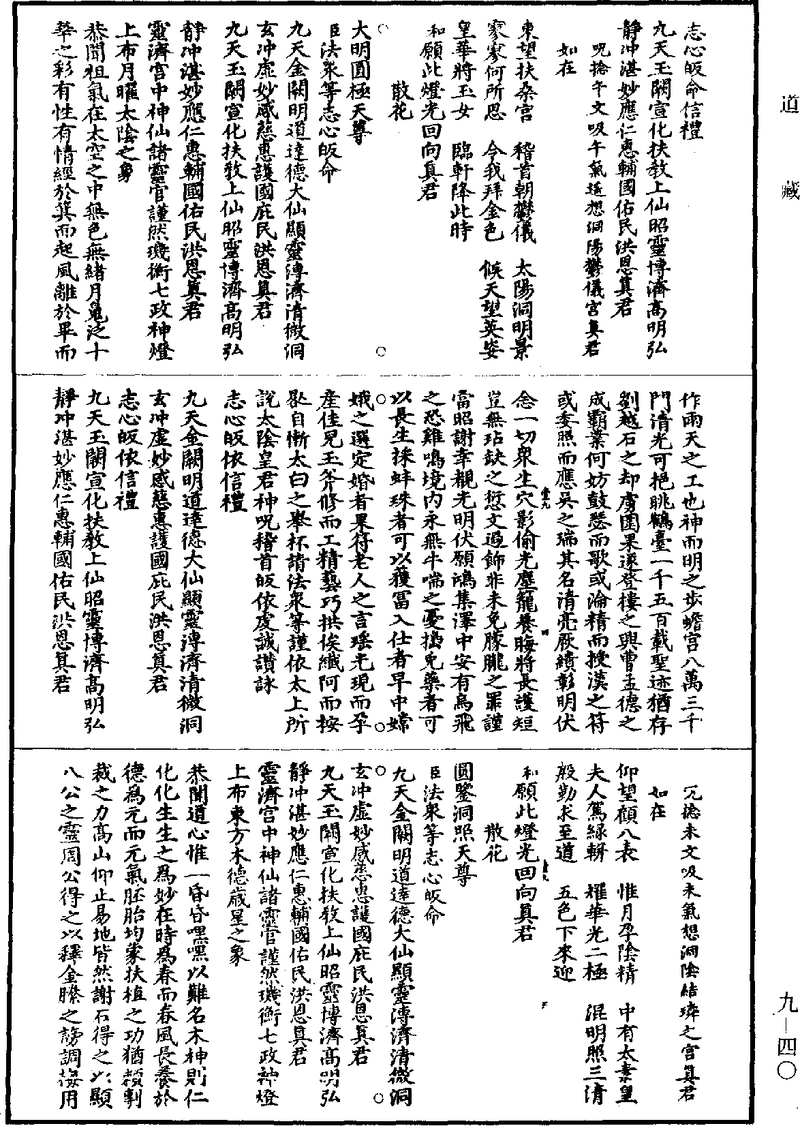 道藏
志心皈命信禮
九天玉闕宣化扶教上仙昭靈博濟高明弘
靜冲湛妙應仁惠輔國佑民洪恩真君
呪捻午文吸午氣遥想洞陽鬱儀宫真君
如在
東望扶桑宫　稽首朝鬱儀　太陽洞明景
寥寥何所思　今我拜金色　候天望英姿
皇華將玉女　臨軒降此時
和願此燈光回向真君
散花
大明圓極天尊
臣法衆等志心皈命
九天金闕明道達德大仙顯靈溥濟清微洞
玄冲虚妙感慈惠護國庇民洪恩真君
九天玉闕宣化扶教上仙昭靈博濟高明弘
靜冲湛妙應仁惠輔國佑民洪恩真君
靈濟宫中神仙諸靈官謹然璣衡七政神燈
上布月曜太陰之象
恭聞祖氣在太空之中無色無緒月魄泛十
華之彩有性有情經於箕而起風離於畢而
作雨天之工也神而明之步蟾宫八萬三千
門清光可挹眺鶴臺一千五百載聖迹猶存
劉越石之却虜圍果遂登樓之興曹孟德之
成霸業何妨鼓瑟而歌或淪精而授漢之符
或委照而應吳之瑞其名清亮厥績彰明伏
念一切衆生穴影偷光塵籠養晦將長護短
豈無玷缺之愆文過飾非未免朦朧之罪謹
當昭謝幸觀光明伏願鴻集澤中安有烏飛
之恐雞鳴境内永無牛喘之憂擣兔藥者可
以長生採蚌珠者可以獲富入仕者早中嫦
娥之選定婚者果符老人之言瑶光現而孕
産佳兒玉斧修而工精藝巧拱俟纖阿而按
轡自慚太白之舉杯請法衆等謹依太上所
說太陰皇君神呪稽首皈依虔誠讚詠
志心皈依信禮
九天金闕明道達德大仙顯靈溥濟清微洞
玄冲虚妙感慈惠護國庇民洪恩真君
志心皈依信禮
九天玉闕宣化扶教上仙昭靈博濟高明弘
靜冲湛妙應仁惠輔國佑民洪恩真君
呪捻未文吸未氣想洞陰結璘之宫真君
如在
仰望顧八表　惟月孕陰精　中有太素皇
夫人駕綠軿　耀華光二極　混明照三清
殷勤求至道　五色下來迎
和願此燈光回向真君
散花
圓鑒洞照天尊
臣法衆等志心皈命
九天金闕明道達德大仙顯靈溥濟清微洞
玄冲虚妙感慈惠護國庇民洪恩真君
九天玉闕宣化扶教上仙昭靈博濟高明弘
靜冲湛妙應仁惠輔國佑民洪恩真君
靈濟宫中神仙諸靈官謹然璣衡七政神燈
上布東方木德歲星之象
恭聞道心惟一昏昏嘿嘿以難名木神則仁
化化生生之爲妙在時爲春而春風長養於
德爲元而元氣胚胎均蒙扶植之功猶頼剸
裁之力高山仰止易地皆然謝石得之以顯
八公之靈周公得之以釋金縢之謗調梅用
九—四〇